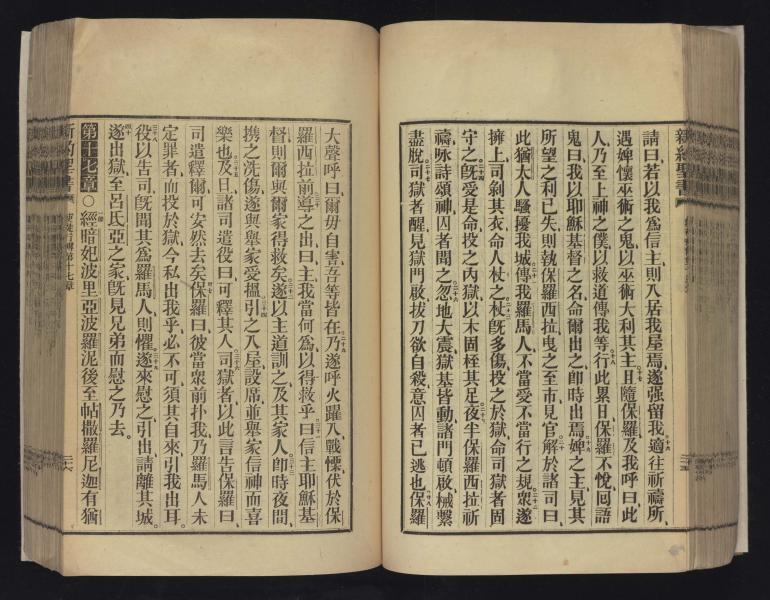 新約聖書
請曰若以我爲信主則入居我屋焉遂强留我適往祈禱所
遇婢懷巫術之鬼以巫術大利其主且隨保羅及我呼曰此
人乃至上神之僕以救道傳我等行此累日保羅不悅囘語
鬼曰我以耶穌基督之名命爾出之卽時出焉婢之主見其
所望之利已失則執保羅西拉曳之至市見官解於諸司曰
此猶太人騷擾我城傳我羅馬人不當受不當行之規衆遂
擁上司剝其衣命人杖之杖旣多傷投之於獄命司獄者固
守之旣受是命投之內獄以木固桎其足夜半保羅西拉祈
禱咏詩頌神囚者聞之忽地大震獄基皆動諸門頓啟械繫
盡脫司獄者醒見獄門啟拔刀欲自殺意囚者已逃也保羅
大聲呼曰爾毋自害吾等皆在乃遂呼火躍入戰慄伏於保
羅西拉前導之出曰主我當何爲以得救乎曰信主耶穌基
督則爾與爾家得救矣遂以主道訓之及其家人卽時夜間
携之洗傷遂與舉家愛搵引之入屋設席並舉家信神而喜
樂也及旦諸司遣役曰可釋其人司獄者以此言告保羅曰
司遣釋爾可安然去矣保羅曰彼當衆前扑我乃羅馬人未
定罪者而投於獄今私出我乎必不可須其自來引我出耳
役以告司旣聞其爲羅馬人則懼遂來慰之引出請離其城
遂出獄至呂氏亞之家旣見兄弟而慰之乃去。
第十七章○經暗妃波里亞波羅泥後至帖撒羅尼迦有猶